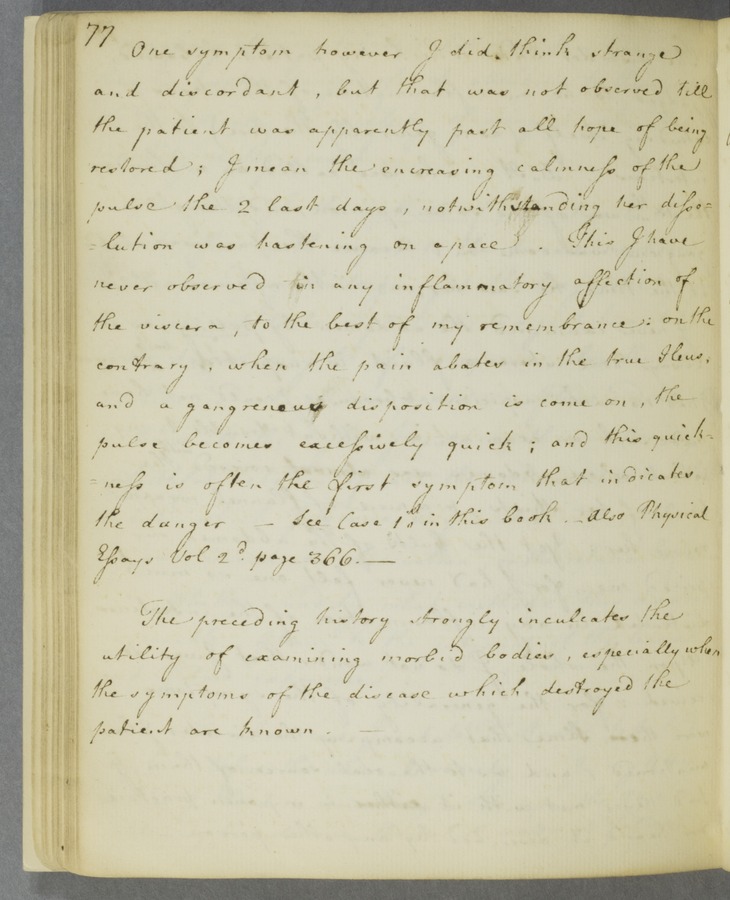 77
One symptom however I did think strange
and discordant, but that was not observed till
the patient was apparently past all hope of being
restored; I mean the encreasing calmneſs of the
pulse the 2 last days, notwithstanding her diſso=
=lution was hastening on apace. This I have
never observed in any inflammatory affection of
the viscera, to the best of my remembrance: on the
contrary, when the pain abates in the true Ileus,
and a gangrenous disposition is come on, the
pulse becomes exceſsively quick; and this quick=
=neſs is often the first symptom that indicates
the danger — See Case 1st in this book. Also Physical
Eſsays Vol 2d. page 366. —
The preceding history strongly inculcates the
utility of examining morbid bodies, especially when
the symptoms of the disease which destroyed the
patient are known. —